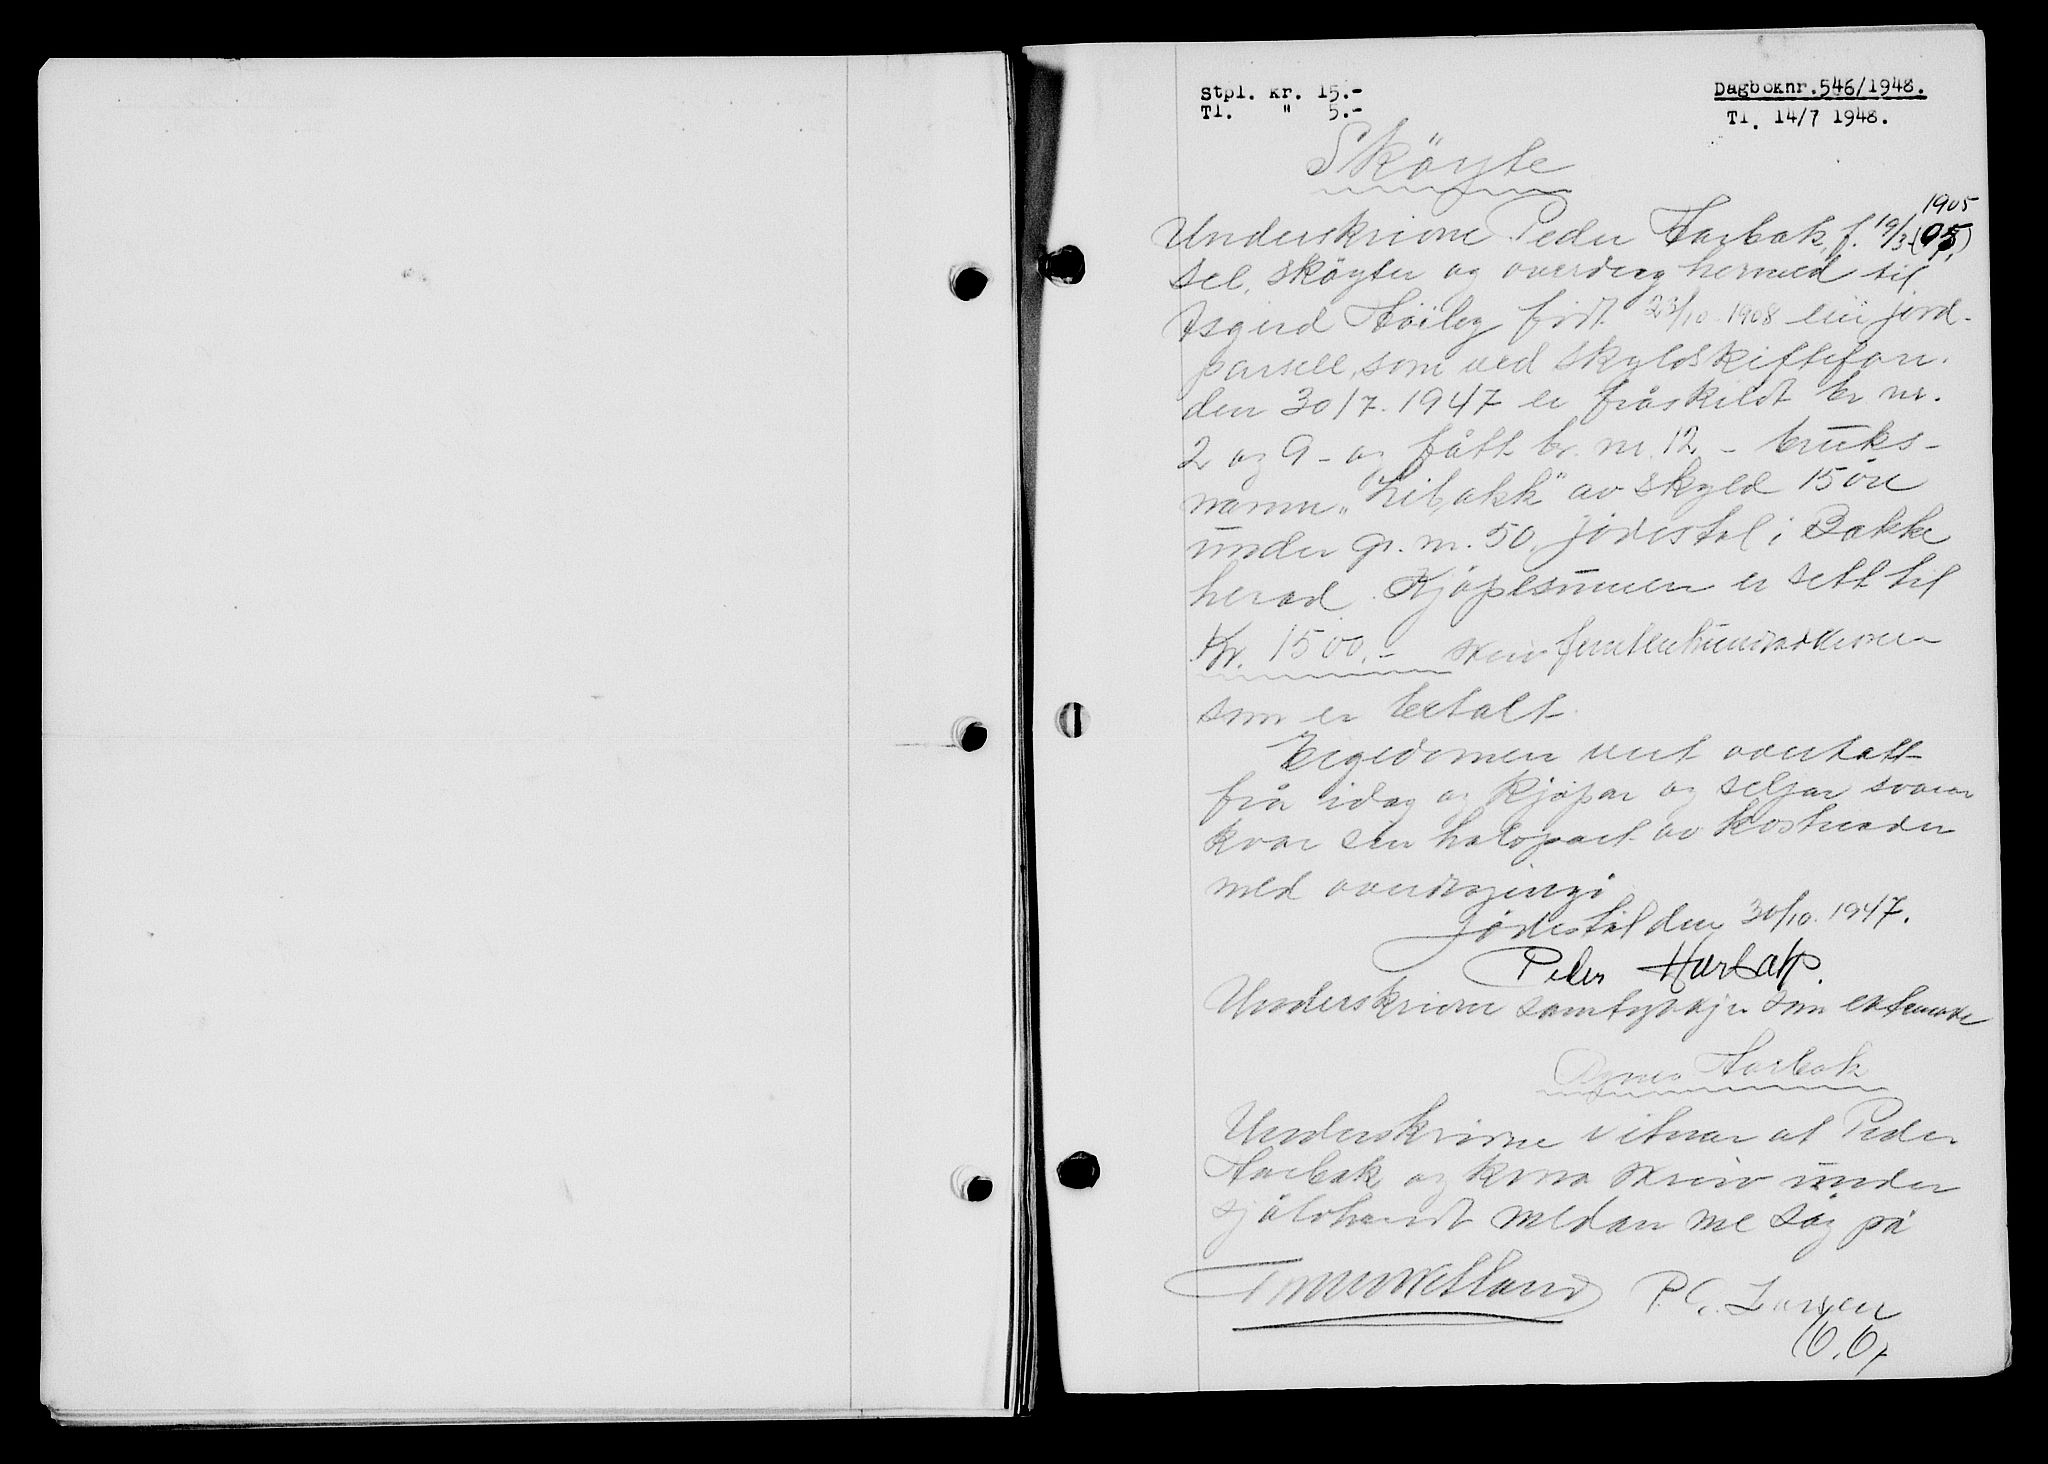 Stpl. kr. 15.-
Tl. " 5.-
Dagboknr. 546/1948.
Tl. 14/7 1948.
Sköyte
1905
Underskrivne Peder Harbak, f. 19/3 (05)
sel, sköyter og overdreg hermed til
Asgerd Höiley født 23/10 1908 ein jord-
parsell, som ved skyldskifteforr.
den 30/7. 1947 er fråskildt br nr.
2 og 9 - og fått br. nr. 12 - bruks-
namn „Libakk" av skyld 15 öre
under gr. nr. 50, Jødestøl i Bakke
herad. Kjöpesummen er sett til
Kr. 1500.- skriv femtenhundradkroner
som er betalt.
Eigedomen vert overtatt
frå idag og kjöpar og seljar svarar
kvar sin halvpart av kostnader
med overdragingi
Jødestøl den 30/10. 1947.
Peder Harbak.
Underskrivne samtykkjer som ektemake
Agnes Harbak
Underskrivne vitnar at Peder
Harbak og kona skreiv under
sjølvhendt medan me såg på
P. C. Larsen